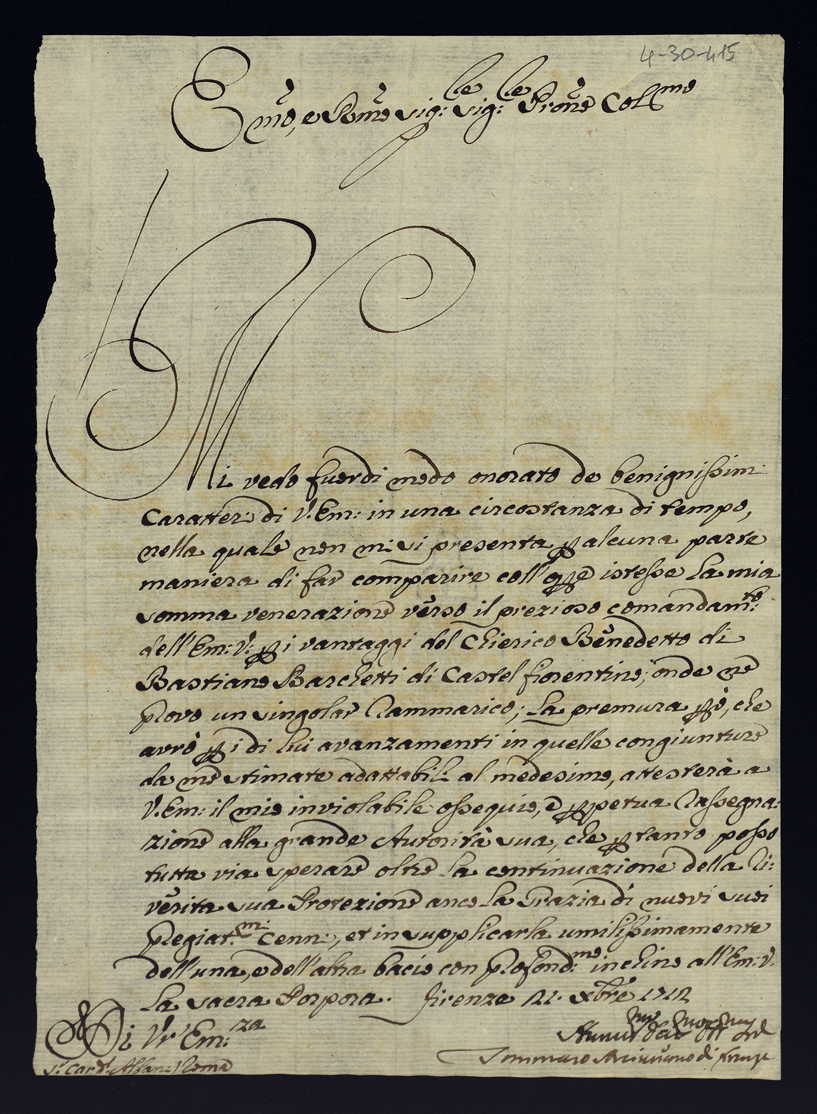 4-30-415
Em̃o, e Rm̃o Sig:re Sig:re Prõne Col̃mo
Mi vedo fuor di modo onorato da benignissim:
Caratter: di V. Em: in una circostanza di tempo,
nella quale non mi si presenta ꝑ alcuna parte
maniera di far comparire coll' oꝑe istesse la mia
somma venerazione verso il prezioso comandam:to
dell' Em: V. ꝑ i vantaggi del Chierico Benedetto di
Bastiano Barchetti di Castel fiorentino; onde ne
provo un singolar rammarico; La premura ꝑò, che
avrò ꝑ i di lui avanzamenti in quelle congiunture
da me stimate adattabili al medesimo, attesterà a
V. Em: il mio inviolabile ossequio, e ꝑpetua rassegna-
zione alla grande Autorità sua, che ꝑ tanto posso
tutta via sperare oltre la continuazione della ri:
verita sua Protezione anco la Grazia di nuovi suoi
pregiat:mi Cenni, et in supplicarla umilissimamente
dell' una, e dell' altra bacio con profond:mo inchino all' Em: V.
la sacra Porpora. Firenze 21: Xbre 1712
Di Vr̃a Em:za
S:r Card: Alban: Roma
Tommaso di Firenze